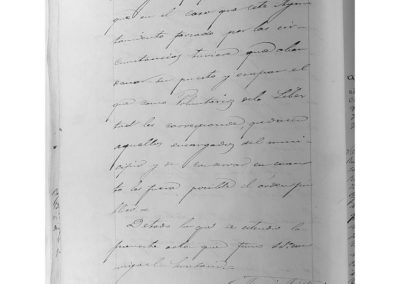 que en el caso que este Ayun-
tamiento forzado por las cir-
cunstancias tuviera que aban
donar su puesto y ocupar el
que como Voluntarios de la Liber
tad les corresponde, quedasen
aquellos encargados del muni-
cipio y de conservar en cuan
to les fuera posible el orden pú-
blico.
De todo lo que se estendio la
presente acta que firmo